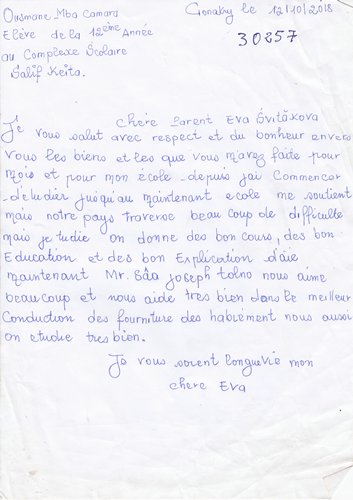 Ousmane Mba Camara
Conakry le 12/10/2018
Elève de la 12ème Année
30257
au Complexe Scolaire
Salif Keita.
Chère Parent Eva Svitàkova
Je vous salut avec respect et du bonheur envers
vous les biens et les que vous m'avez faite pour
Mois et pour mon école depuis j'ai Commencer
d'etudier jusqu'au maintenant ecole me soutient
mais notre pays traverse beau coup de difficulte
mais je tudie on donne des bon cours, des bon
Education et des bon Explication d'aie
maintenant Mr. Sâa Joseph tolno nous aime
beaucoup et nous aide tres bien dans le meilleur
Conduction des fourniture des habrement nous aussi
on etudie tres bien.
Je vous soient longue vie mon
chere Eva